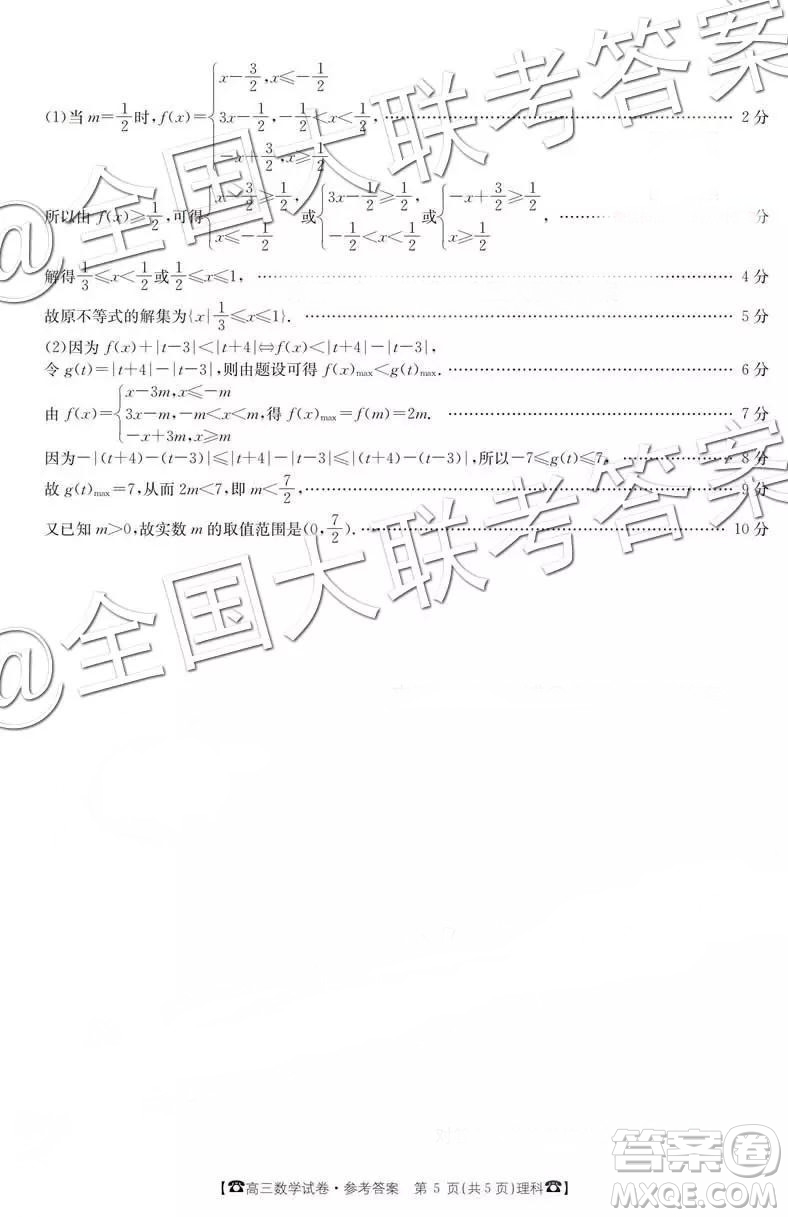 (1)当 m=1/2 时,f(x)={x-3/2,x≤-1/2; 3x-1/2,-1/2<x<1/2; -x+3/2,x≥1/2, …… 2 分
所以由 f(x)≥1/2,可得{x-3/2≥1/2, x≤-1/2 或{3x-1/2≥1/2, -1/2<x<1/2 或{-x+3/2≥1/2, x≥1/2 , …… 分
解得1/3≤x<1/2或1/2≤x≤1, …… 4 分
故原不等式的解集为{x|1/3≤x≤1}. …… 5 分
(2)因为 f(x)+|t-3|<|t+4|⇔f(x)<|t+4|-|t-3|,
令 g(t)=|t+4|-|t-3|,则由题设可得 f(x)max<g(t)max. …… 6 分
由 f(x)={x-3m,x≤-m; 3x-m,-m<x<m,; -x+3m,x≥m 得 f(x)max=f(m)=2m. …… 7 分
因为-|(t+4)-(t-3)|≤|t+4|-|t-3|≤|(t+4)-(t-3)|,所以-7≤g(t)≤7, …… 8 分
故 g(t)max=7,从而 2m<7,即 m<7/2, …… 9 分
又已知 m>0,故实数 m 的取值范围是(0,7/2). …… 10 分
@全国大联考答案
@全国大联考答案
答案卷
MXQE.COM
【☎高三数学试卷·参考答案 第 5 页(共 5 页)理科☎】